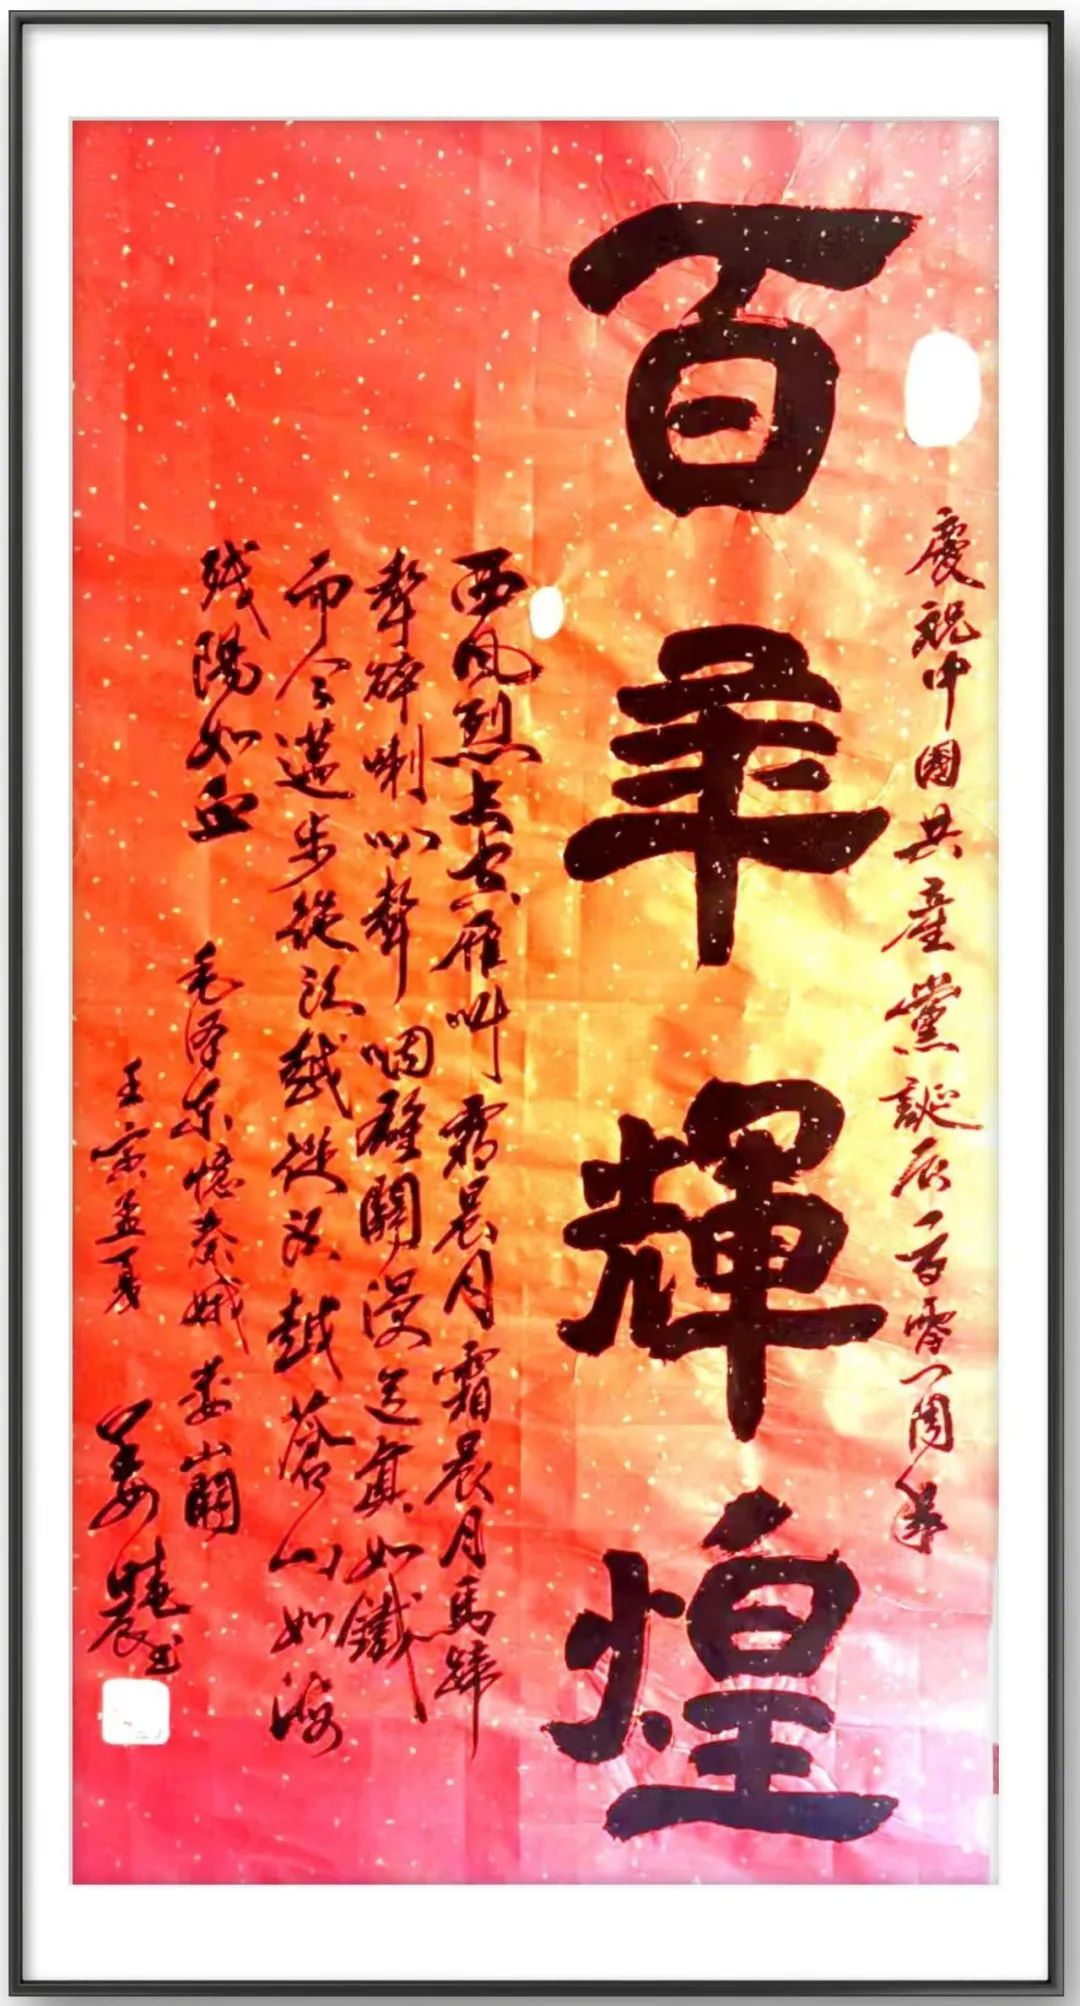 慶祝中國共產黨誕辰一百零一周年
百年輝煌
西风烈长空雁叫霜晨月霜晨月馬蹄
聲碎喇叭聲咽雄關漫道真如鐵
而今邁步從头越從头越蒼山如海
残陽如血
毛泽东憶秦娥娄山關
壬寅孟夏
姜曉晨书